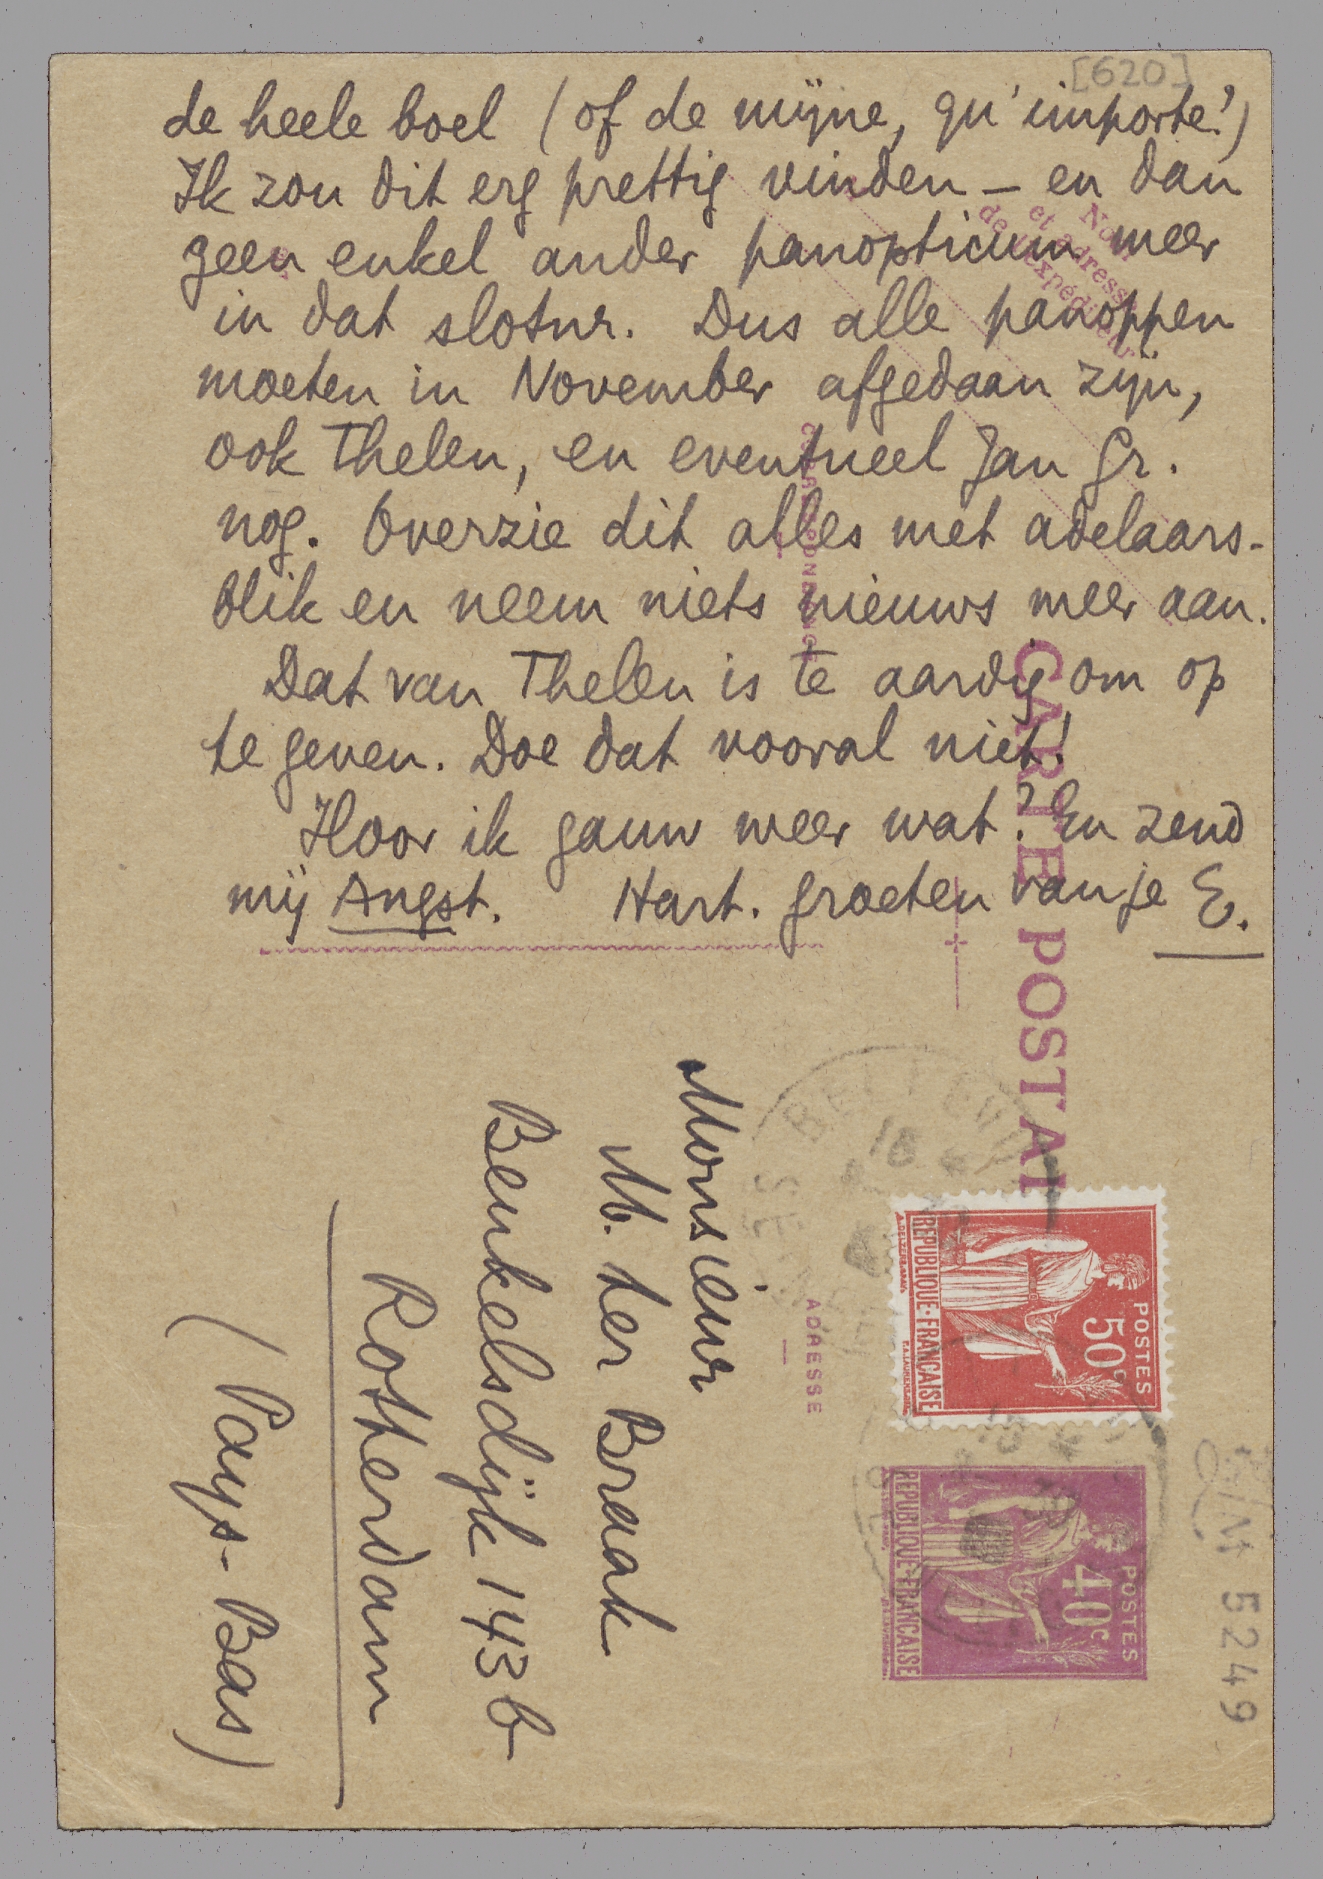 [620]
de heele boel (of de mijne, qu'importe!)
Ik zou dit erg prettig vinden — en dan
geen enkel ander panopticum meer
in dat slotnr. Dus alle panoppen
moeten in November afgedaan zijn,
ook Thelen, en eventueel Jan Gr.
nog. Overzie dit alles met adelaars-
blik en neem niets nieuws meer aan.
Dat van Thelen is te aardig om op
te geven. Doe dat vooral niet!
Hoor ik gauw weer wat? En zend
mij Angst. Hart. groeten van je E.
Nom
et adresse
de l'expéditeur
CORRESPONDANCE
CARTE POSTALE
ADRESSE
Monsieur
M. ter Braak
Beukelsdijk 143b
Rotterdam
(Pays-Bas)
POSTES
50c
REPUBLIQUE·FRANÇAISE
POSTES
40c
REPUBLIQUE·FRANÇAISE
5249